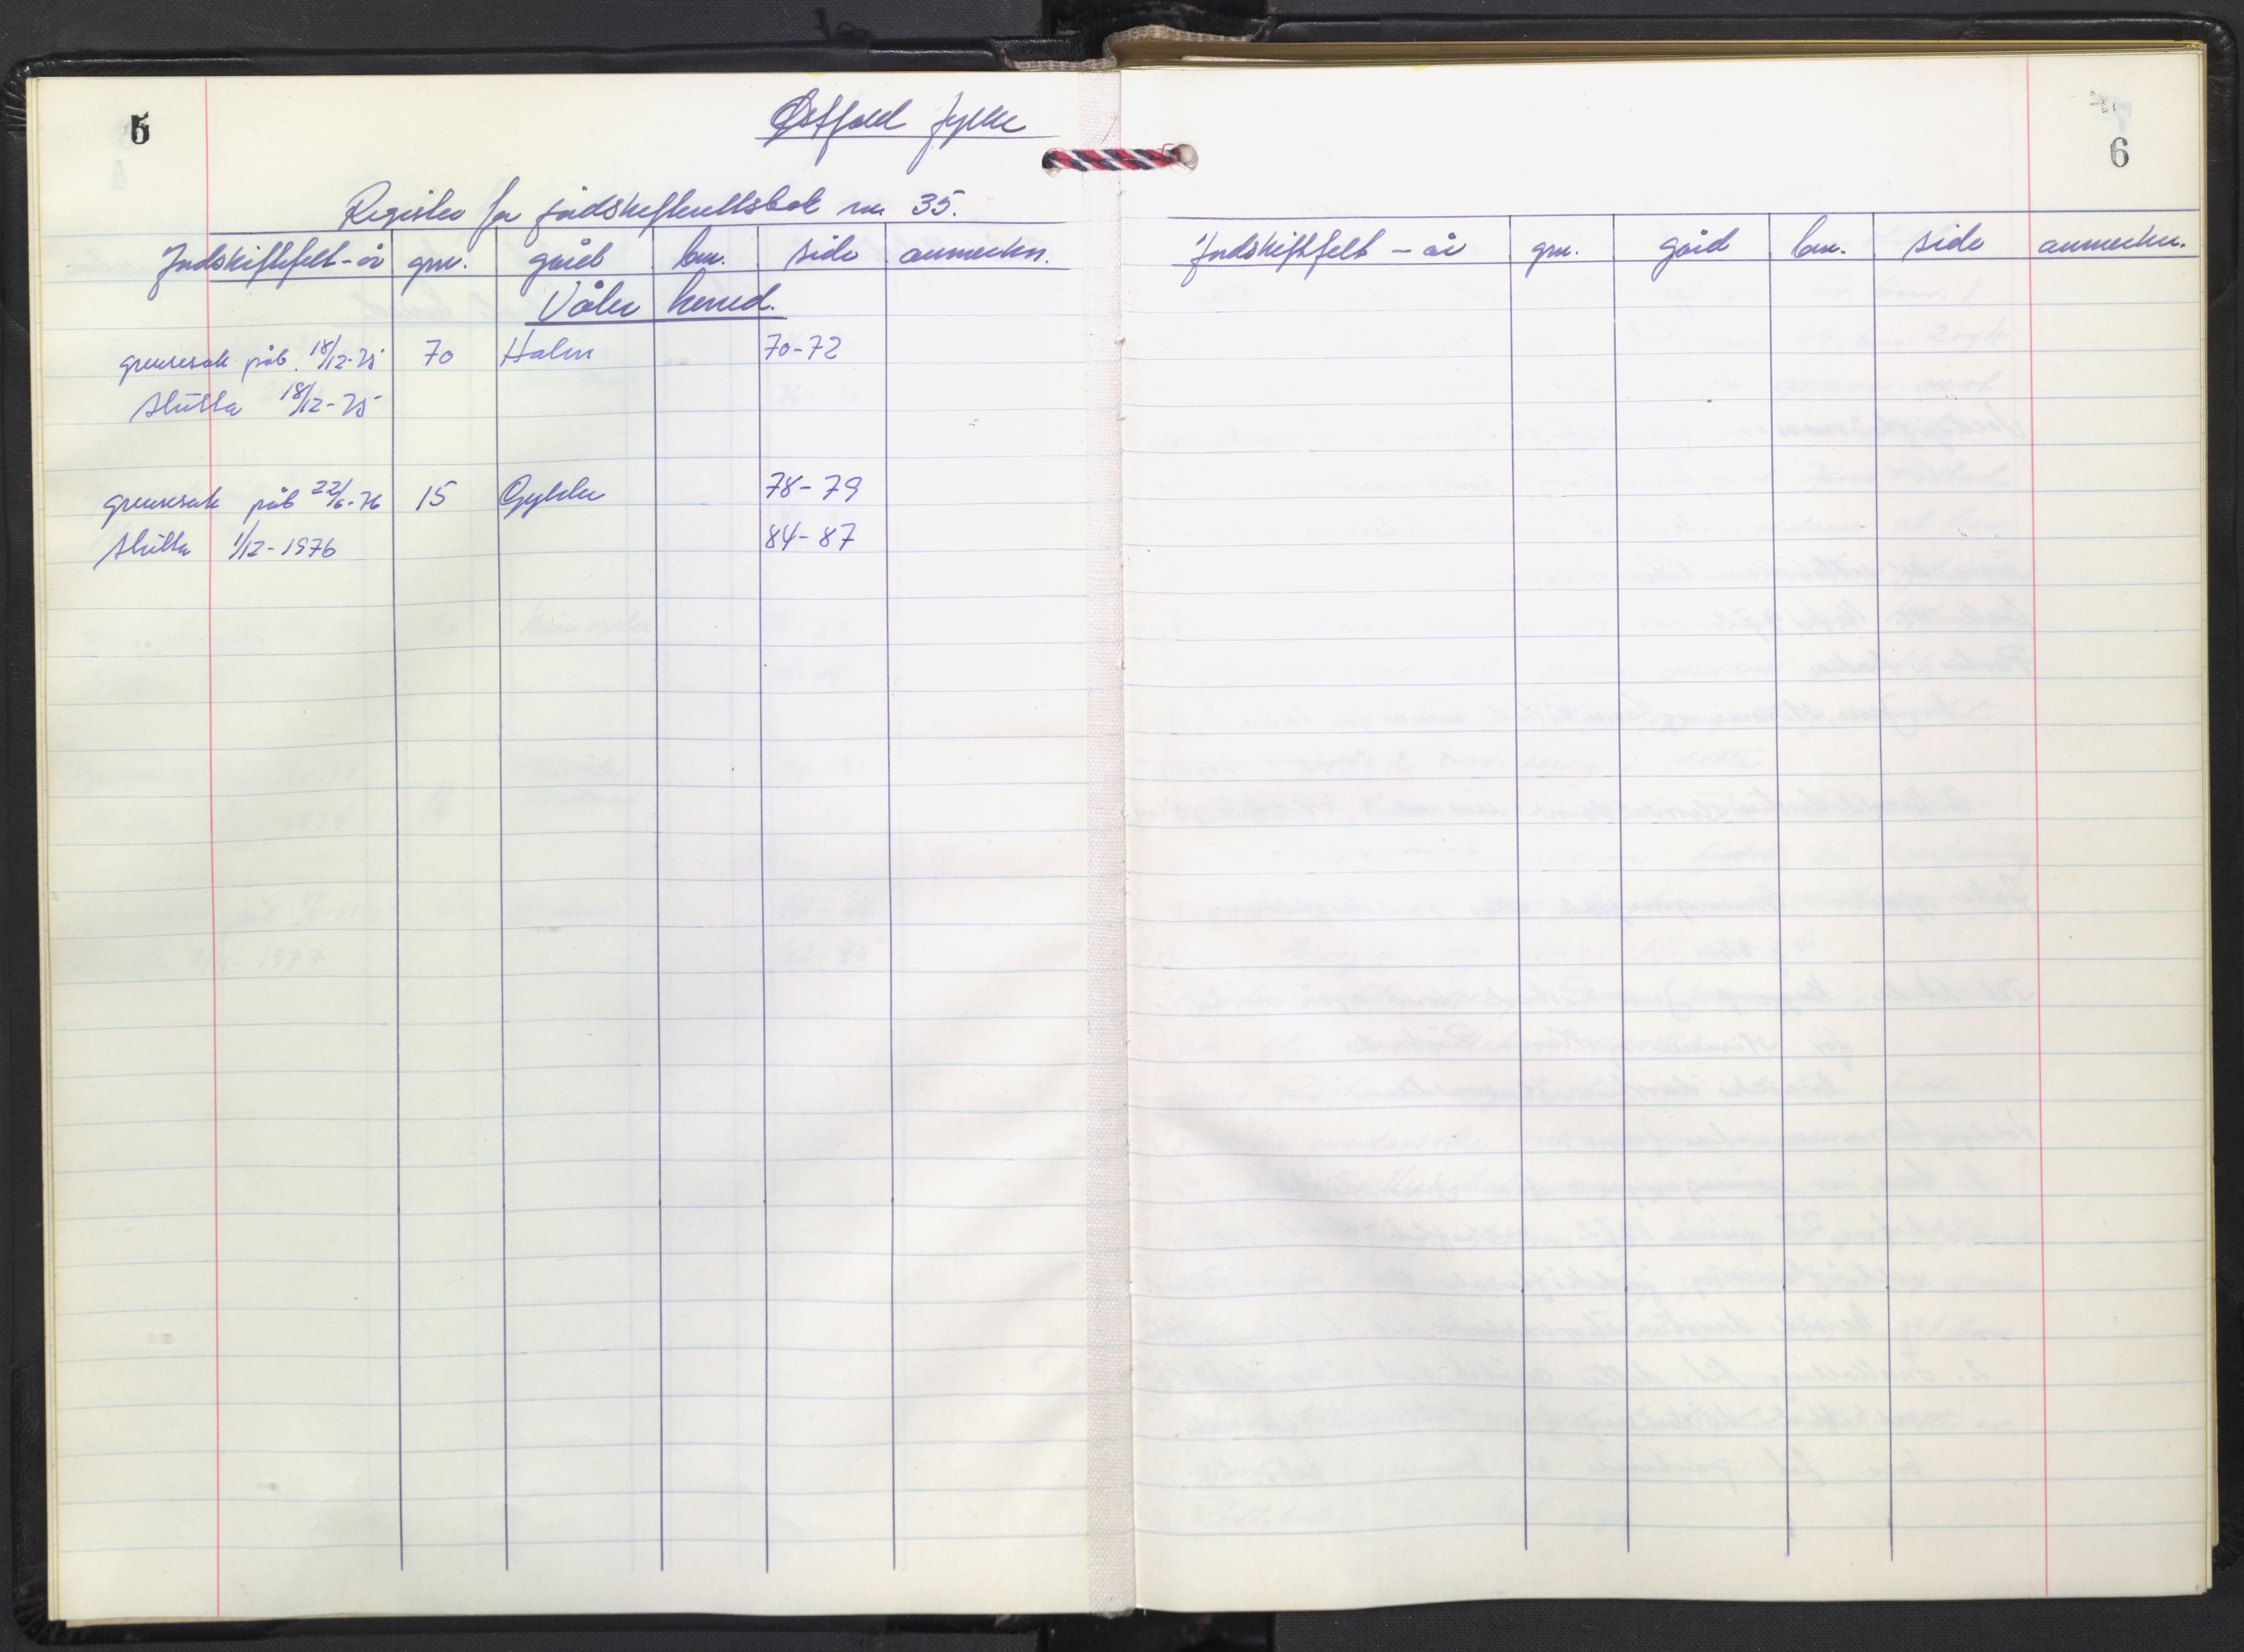 5
Østfold fylke
Register for jordskifterettsbok nr. 35.
Jordskiftefelt - år gnr. gård bnr. side anmerkn.
Våler herred.
grensesak påb. 18/12-75 70 Holm 70-72
slutta 18/12-75
grensesak påb 22/6-76 15 Gylder 78-79
slutta 1/12-1976 84-87
6
Jordskiftfelt - år gnr. gård bnr. side anmerkn.